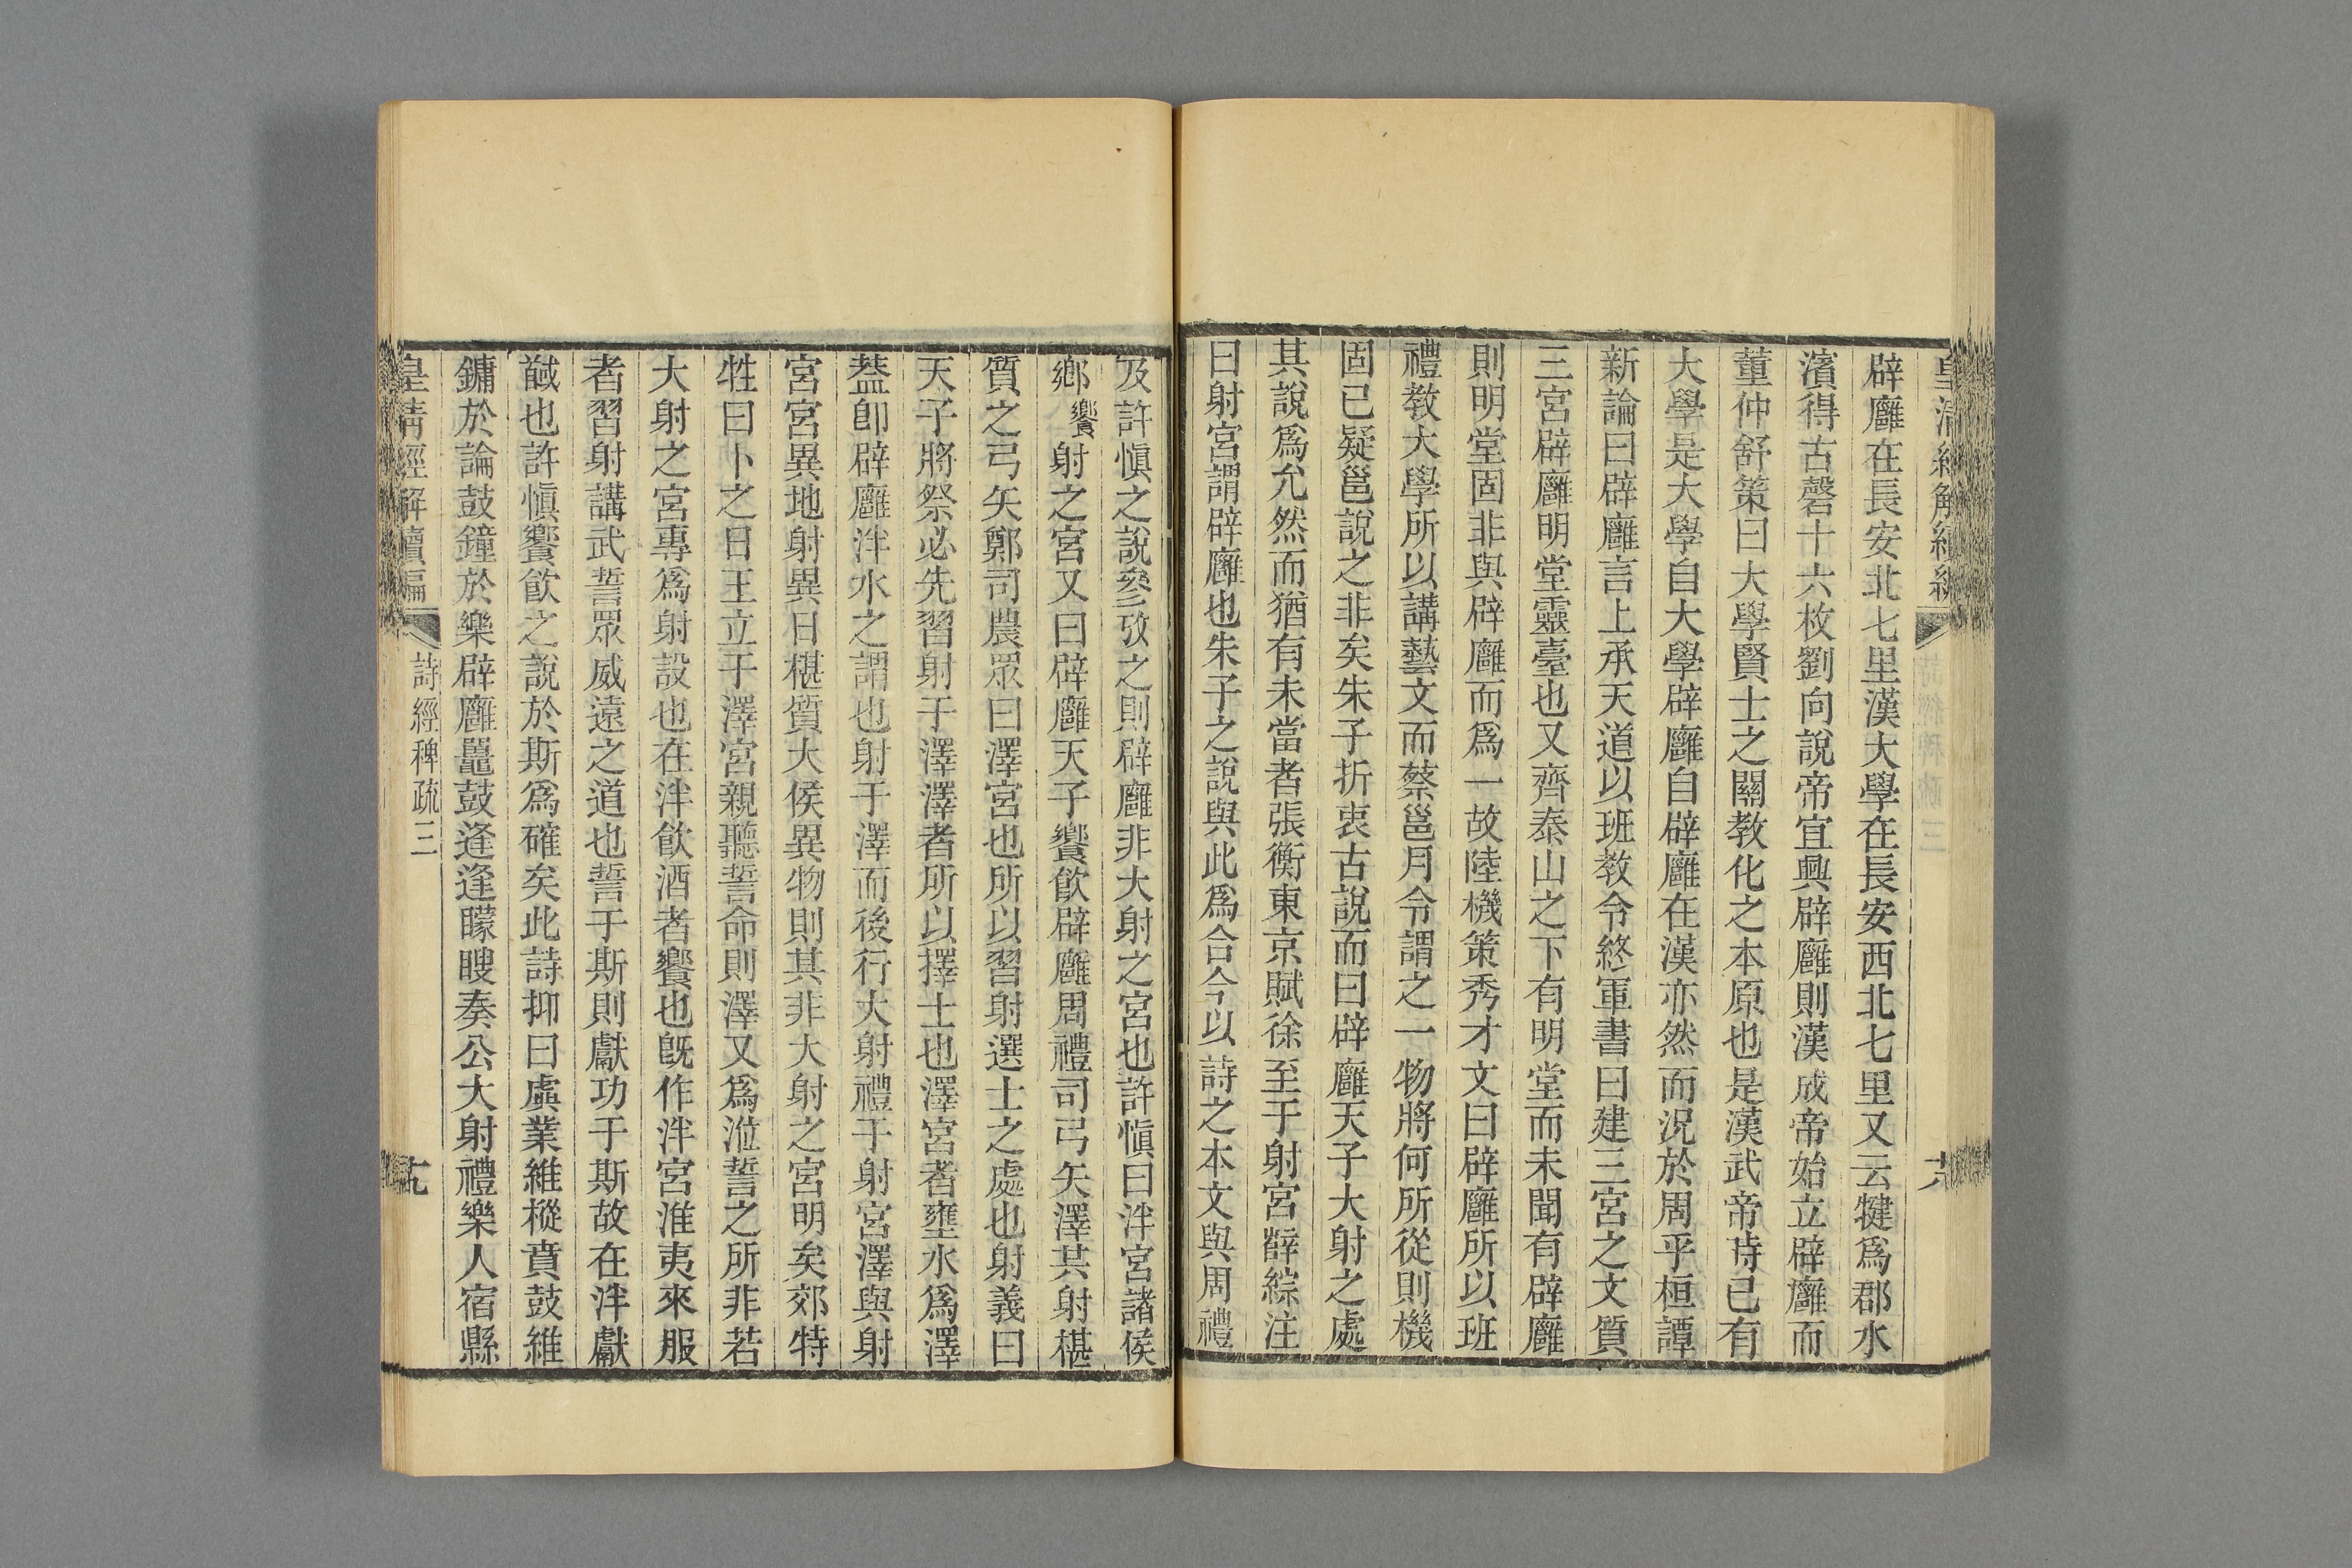 皇清經解續編
辟廱在長安北七里漢大學在長安西北七里又云犍爲郡水
濱得古磬十六枚劉向說帝宜興辟廱則漢成帝始立辟廱而
董仲舒策曰大學賢士之關教化之本原也是漢武帝時已有
大學是大學自大學辟廱自辟廱在漢亦然而況於周乎桓譚
新論曰辟廱言上承天道以班教令終軍書曰建三宮之文質
三宮辟廱明堂靈臺也又齊泰山之下有明堂而未聞有辟廱
則明堂固非與辟廱而爲一故陸機策秀才文曰辟廱所以班
禮教大學所以講藝文而蔡邕月令謂之一物將何所從則機
固已疑邕說之非矣朱子折衷古說而曰辟廱天子大射之處
其說爲允然而猶有未當者張衡東京賦徐至于射宮薛綜注
曰射宮謂辟廱也朱子之說與此爲合今以詩之本文與周禮
及許愼之說參攷之則辟廱非大射之宮也許愼曰泮宮諸侯
鄕饗射之宮又曰辟廱天子饗飮辟廱周禮司弓矢澤共射椹
質之弓矢鄭司農眾曰澤宮也所以習射選士之處也射義曰
天子將祭必先習射于澤澤者所以擇士也澤宮者壅水爲澤
葢卽辟廱泮水之謂也射于澤而後行大射禮于射宮澤與射
宮宮異地射異日椹質大侯異物則其非大射之宮明矣郊特
牲曰卜之日王立于澤宮親聽誓命則澤又爲涖誓之所非若
大射之宮專爲射設也在泮飮酒者饗也旣作泮宮淮夷來服
者習射講武誓眾威遠之道也誓于斯則獻功于斯故在泮獻
馘也許愼饗飮之說於斯爲確矣此詩抑曰虡業維樅賁鼓維
鏞於論鼓鐘於樂辟廱鼉鼓逢逢矇瞍奏公大射禮樂人宿縣
皇清經解續編 詩經稗疏三